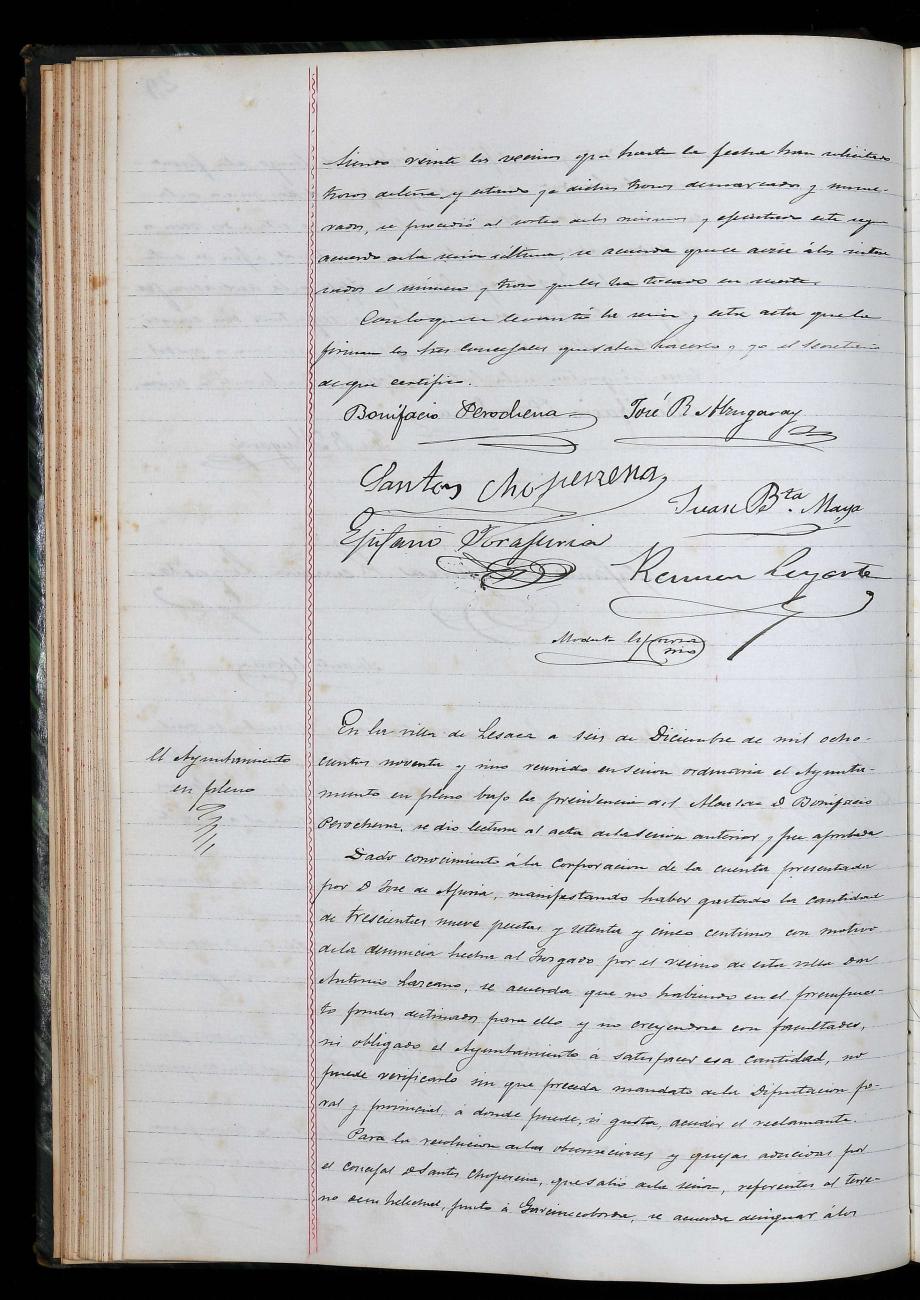 Siendo veinte los vecinos que hasta la fecha han solicitado
trozos de tierra y estando ya dichos trozos demarcados y nume-
rados, se procedió al sorteo de los mismos y efectuado este segun
acuerdo de la sesion última, se acuerda que se avise á los intere
sados el número y trozo que les ha tocado en suerte.
Con lo que se levantó la sesion y esta acta que la
firman los tres concejales que saben hacerlo y yo el Secretario
de que certifico.
Bonifacio Perochena José R. Alzugaray
Santos Choperena
Juan Bta. Maya
Epifanio
Ramon Lugarte
Modesto
En la villa de Lesaca a seis de Diciembre de mil ocho-
El Ayuntamiento
en pleno
cientos noventa y cinco reunido en sesion ordinaria el Ayunta-
miento en pleno bajo la presidencia del Alcalde D Bonifacio
Perochena, se dio lectura al acta de la sesion anterior y fue aprobada
Dado conocimiento á la Corporacion de la cuenta presentada
por D José de Apiria, manifestando haber gastado la cantidad
de trescientas nueve pesetas y setenta y cinco centimos con motivo
de la denuncia hecha al Juzgado por el vecino de esta villa don
Antonio Lazcano, se acuerda que no habiendo en el presupues-
to fondos destinados para ello y no creyendose con facultades,
ni obligado el Ayuntamiento á satisfacer esa cantidad, no
puede verificarlo sin que preceda mandato de la Diputacion fo-
ral y provincial, á donde puede, si gusta, acudir el reclamante.
Para la resolucion de las observaciones y quejas aducidas por
el concejal D Santos Choperena, que salio de la sesion, referentes al terre-
no de un helechal, junto á se acuerda designar á los